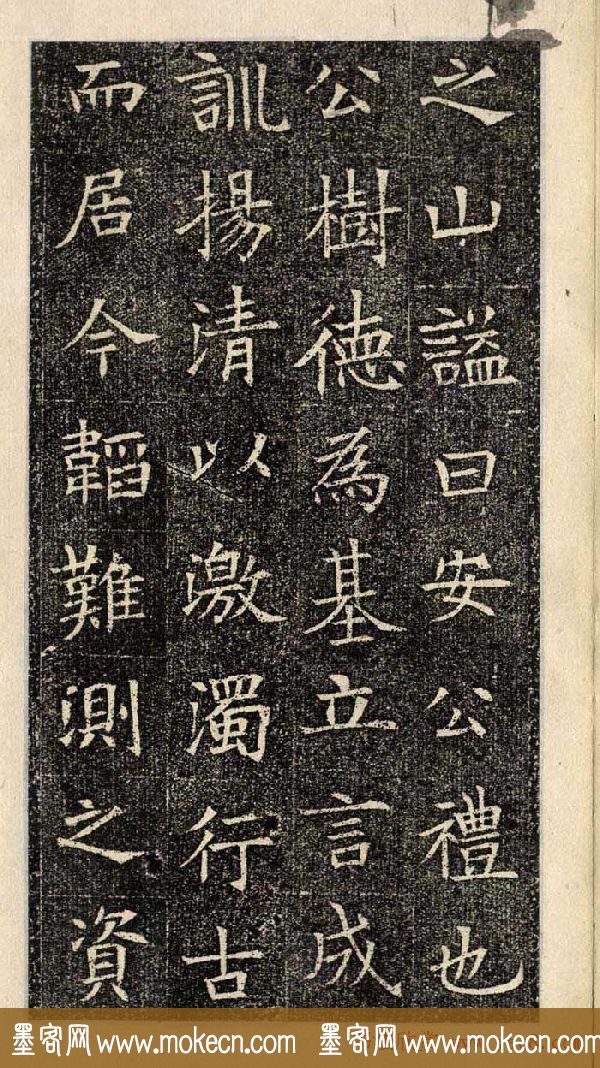 之山謚曰安公禮也
公樹德為基立言成
訓揚清以激濁行古
而居今韜難測之資
墨客网 www.mokecn.com 墨客网 www.mokecn.com